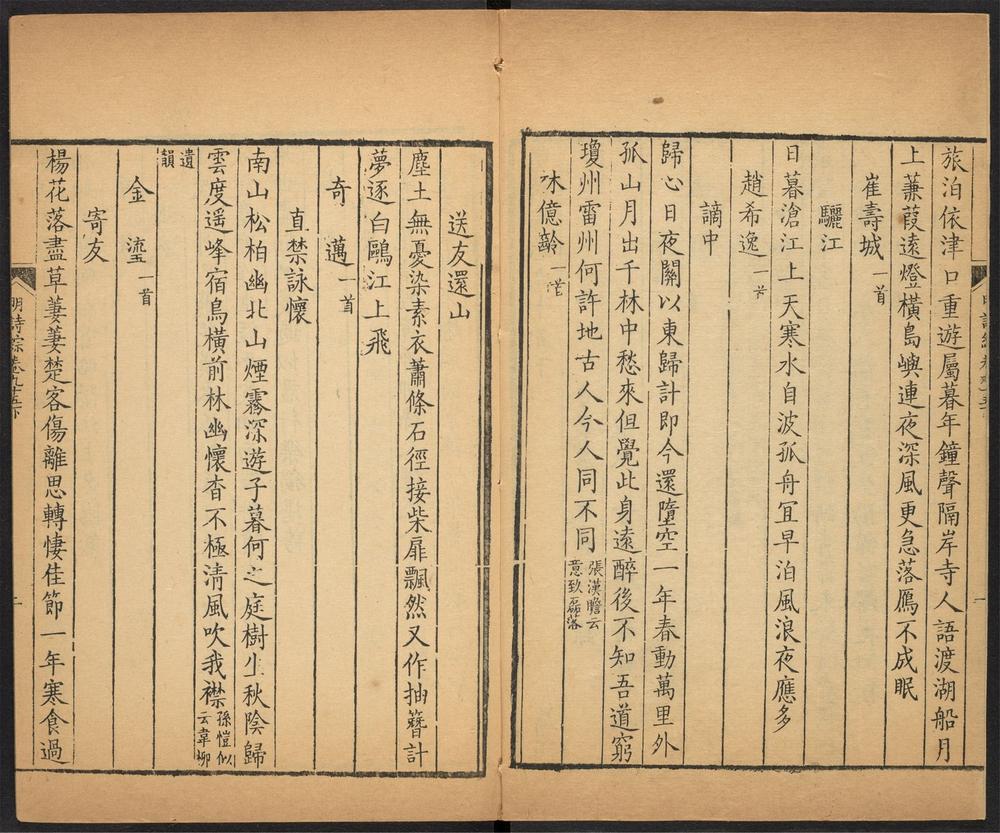 旅泊依津口重遊屬暮年鐘聲隔岸寺人語渡湖船月
上蒹葭遠燈橫島嶼連夜深風更急落鴈不成眠
崔壽城一首
驪江
日暮滄江上天寒水自波孤舟冝早泊風浪夜應多
趙希逸一首
謫中
歸心日夜關以東歸計即今還墮空一年春動萬里外
孤山月出千林中愁來但覺此身遠醉後不知吾道窮
瓊州雷州何許地古人今人同不同張漢瞻云意致磊落
林億齡一首
送友還山
塵土無憂染素衣蕭條石徑接柴扉飄然又作抽簪計
夢逐白鷗江上飛
奇邁一首
直禁詠懷
南山松柏幽北山煙霧深遊子暮何之庭樹生秋陰歸
雲度遥峰宿鳥横前林幽懷杳不極清風吹我襟孫愷似云韋柳
遺韻
金瑬一首
寄友
楊花落盡草萋萋楚客傷離思轉悽佳節一年寒食過
明詩綜卷九十五下